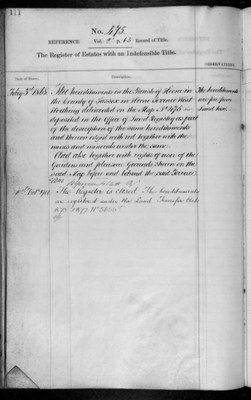 111
No. 475.
REFERENCE Vol. 9, p. 63 Record of Title.
The Register of Estates with an Indefeasible Title.
Date of Entry.
Description.
OBSERVATIONS.
Feby 3rd 1868
The hereditaments in the Parish of Hove in
the County of Sussex in
Worthing delineated on the Map No. 475
deposited in the Office of Land Registry as part
of the description of the same hereditaments
and thereon edged with red together with the
mines and minerals under the same
And also together with rights of user of the
Gardens and pleasure Grounds shown on the
said Map before and behind the said Terrace
The hereditaments
are free from
Land tax
The Register is closed. The hereditaments
are registered under the Land Transfer Acts